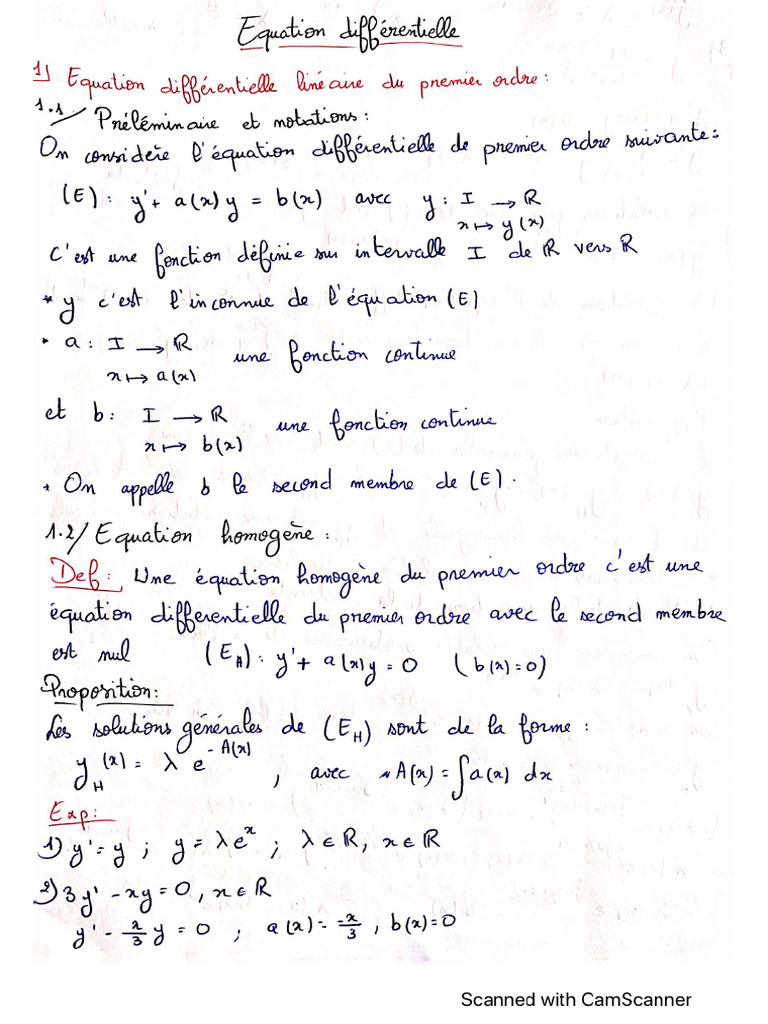 Equation différentielle
1) Equation différentielle linéaire du premier ordre :
1.1/ Préléminaire et notations :
On considère l'équation différentielle de premier ordre suivante :
(E) : y' + a(x) y = b(x) avec y : I → R
x ↦ y(x)
c'est une fonction définie sur intervalle I de R vers R
* y c'est l'inconnue de l'équation (E)
• a : I → R une fonction continue
x ↦ a(x)
et b : I → R une fonction continue
x ↦ b(x)
* On appelle b le second membre de (E).
1.2/ Equation homogène :
Def : Une équation homogène du premier ordre c'est une
équation différentielle du premier ordre avec le second membre
est nul (E_H) : y' + a(x)y = 0 (b(x)=0)
Proposition :
Les solutions générales de (E_H) sont de la forme :
y_H(x) = λ e^{-A(x)} , avec A(x) = ∫a(x) dx
Exp :
1) y' = y ; y = λe^x ; λ ∈ R, x ∈ R
2) 3y' - xy = 0, x ∈ R
y' - x/3 y = 0 ; a(x) = -x/3 , b(x)=0
Scanned with CamScanner